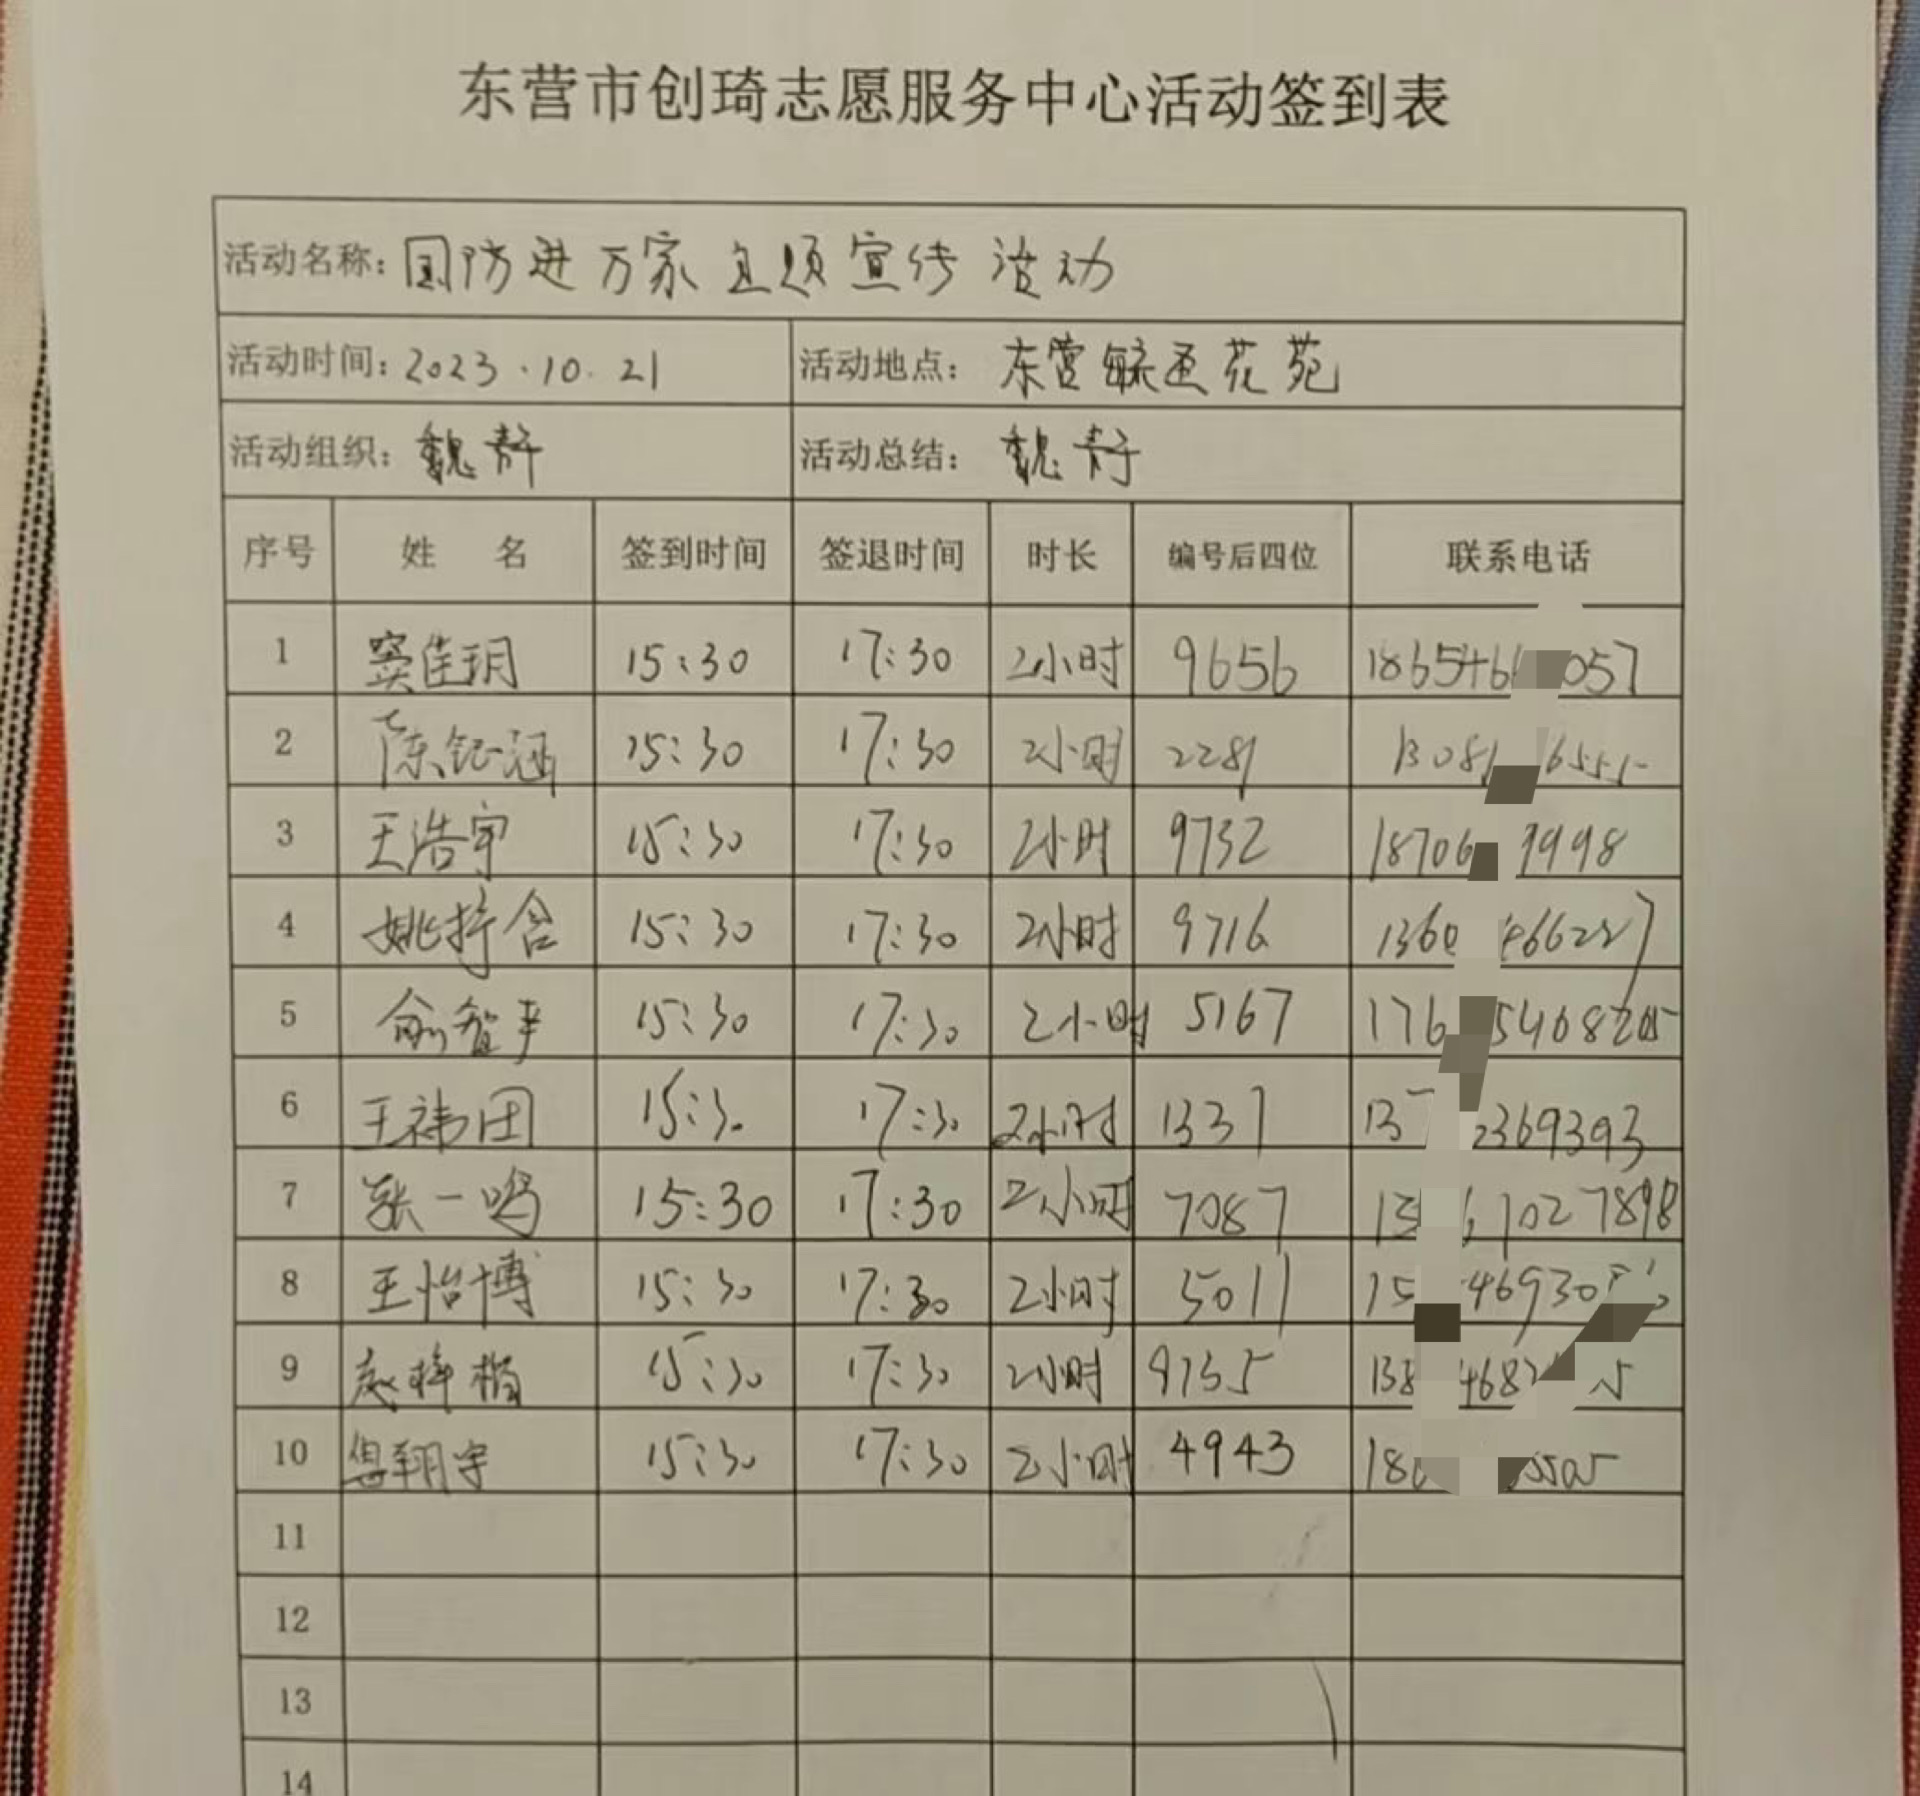 东营市创琦志愿服务中心活动签到表
活动名称：国防进万家主题宣传活动
活动时间：2023.10.21 活动地点：东营毓秀花苑
活动组织：魏静 活动总结：魏静
序号 姓 名 签到时间 签退时间 时长 编号后四位 联系电话
1 窦佳玥 15:30 17:30 2小时 9656 186546 057
2 陈钰涵 15:30 17:30 2小时 2281 1308 6555
3 王浩宇 15:30 17:30 2小时 9732 18706 9998
4 姚 含 15:30 17:30 2小时 9716 1360 466227
5 15:30 17:30 2小时 5167 176 5468205
6 王祎田 15:30 17:30 2小时 1337 13 2369393
7 张一鸣 15:30 17:30 2小时 7087 13 7027898
8 王怡博 15:30 17:30 2小时 5011 15 46930
9 15:30 17:30 2小时 9735 138 4682 5
10 翔宇 15:30 17:30 2小时 4943 18 5505
11
12
13
14